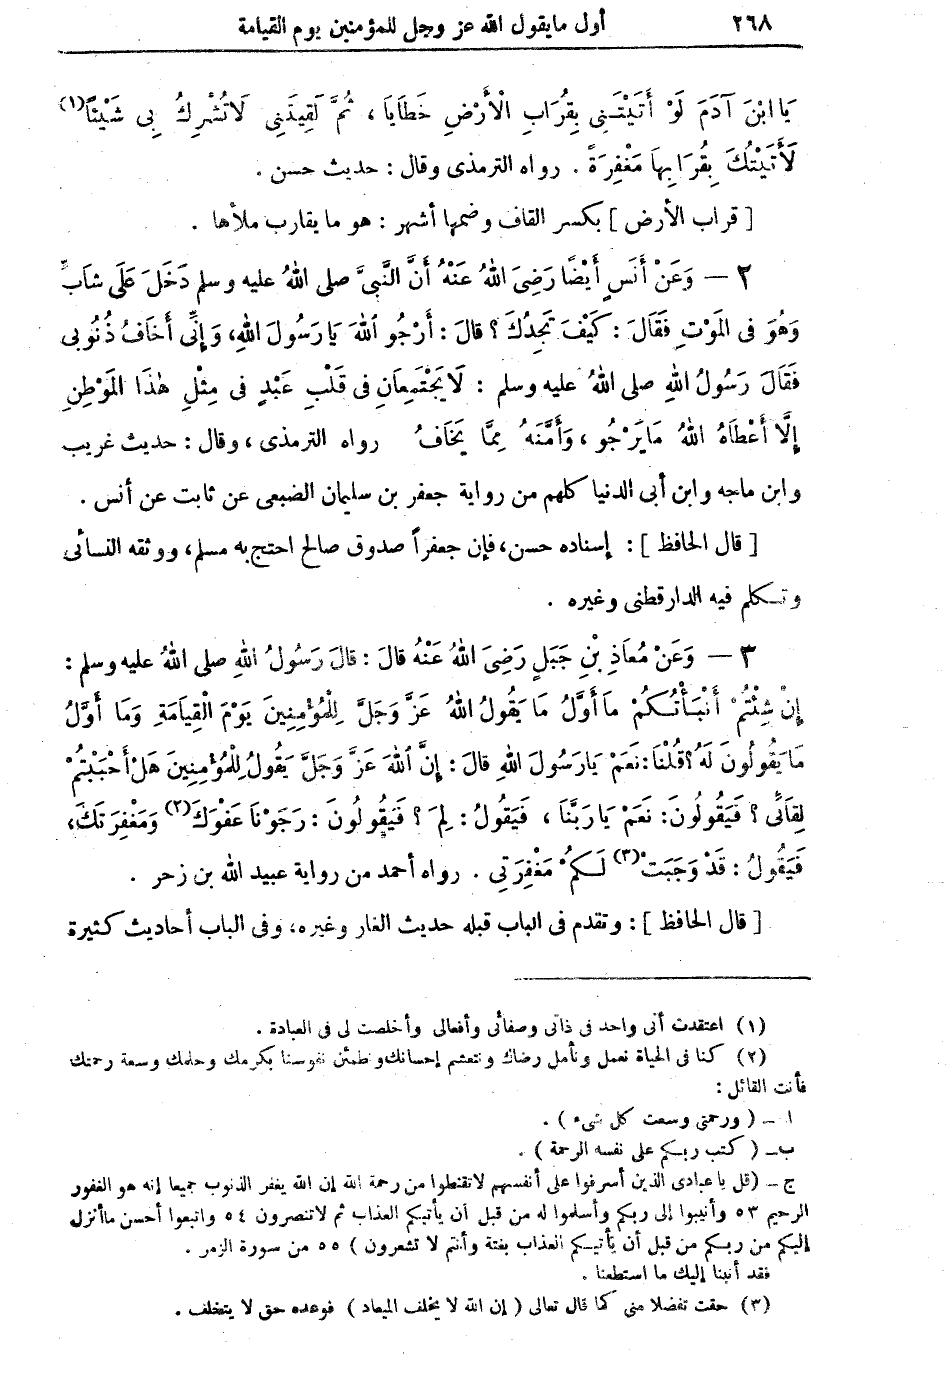 ٢٦٨ أول ما يقول الله عز وجل للمؤمنين يوم القيامة
يَا ابْنَ آدَمَ لَوْ أَتَيْتَنِي بِقُرَابِ الْأَرْضِ خَطَايَا، ثُمَّ لَقِيتَنِي لَا تُشْرِكُ بِي شَيْئًا(١)
لَأَتَيْتُكَ بِقُرَابِهَا مَغْفِرَةً . رواه الترمذى وقال : حديث حسن .
[ قراب الأرض ] بكسر القاف وضمها أشهر : هو ما يقارب ملأها .
٢ — وَعَنْ أَنَسٍ أَيْضًا رَضِىَ اللهُ عَنْهُ أَنَّ النَّبِىَّ صلى اللهُ عليه وسلم دَخَلَ عَلَى شَابٍّ
وَهُوَ فى المَوْتِ فَقَالَ : كَيْفَ تَجِدُكَ ؟ قالَ : أَرْجُو اللهَ يَا رَسُولَ اللهِ، وَإِنِّى أَخَافُ ذُنُوبى
فَقَالَ رَسُولُ اللهِ صلى اللهُ عليه وسلم : لَا يَجْتَمِعَانِ فى قَلْبِ عَبْدٍ فى مِثْلِ هٰذَا المَوْطِنِ
إِلَّا أَعْطَاهُ اللهُ مَا يَرْجُو ، وَأَمَّنَهُ مِمَّا يَخَافُ رواه الترمذى ، وقال : حديث غريب
وابن ماجه وابن أبى الدنيا كلهم من رواية جعفر بن سليمان الضبعى عن ثابت عن أنس .
[ قال الحافظ ] : إسناده حسن، فإن جعفراً صدوق صالح احتج به مسلم، ووثقه النسائى
وتكلم فيه الدارقطنى وغيره .
٣ — وَعَنْ مُعَاذِ بْنِ جَبَلٍ رَضِىَ اللهُ عَنْهُ قالَ : قالَ رَسُولُ اللهِ صلى اللهُ عليه وسلم :
إِنْ شِئْتُمْ أَنْبَأْتُكُمْ مَا أَوَّلُ مَا يَقُولُ اللهُ عَزَّ وَجَلَّ لِلْمُؤْمِنِينَ يَوْمَ الْقِيَامَةِ وَمَا أَوَّلُ
مَا يَقُولُونَ لَهُ؟ قُلْنَا: نَعَمْ يَا رَسُولَ اللهِ قالَ : إِنَّ اللهَ عَزَّ وَجَلَّ يَقُولُ لِلْمُؤْمِنِينَ هَلْ أَحْبَبْتُمْ
لِقَائى ؟ فَيَقُولُونَ: نَعَمْ يَا رَبَّنَا ، فَيَقُولُ : لِمَ ؟ فَيَقُولُونَ : رَجَوْنَا عَفْوَكَ(٢) وَمَغْفِرَتَكَ،
فَيَقُولُ : قَدْ وَجَبَتْ(٣) لَكُمْ مَغْفِرَتِى . رواه أحمد من رواية عبيد الله بن زحر .
[ قال الحافظ ] : وتقدم فى الباب قبله حديث الغار وغيره، وفى الباب أحاديث كثيرة
(١) اعتقدت أنى واحد فى ذاتى وصفاتى وأفعالى وأخلصت لى فى العبادة .
(٢) كنا فى الحياة نعمل ونأمل رضاك ونتعشم إحسانك ونطمئن نفوسنا بكرمك وحلمك وسعة رحمتك
فأنت القائل :
ا — ( ورحمتى وسعت كل شىء ) .
ب — ( كتب ربكم على نفسه الرحمة ) .
ج — (قل يا عبادى الذين أسرفوا على أنفسهم لا تقنطوا من رحمة الله إن الله يغفر الذنوب جميعا إنه هو الغفور
الرحيم ٥٣ وأنيبوا إلى ربكم وأسلموا له من قبل أن يأتيكم العذاب ثم لا تنصرون ٥٤ واتبعوا أحسن ما أنزل
إليكم من ربكم من قبل أن يأتيكم العذاب بغتة وأنتم لا تشعرون ) ٥٥ من سورة الزمر .
فقد أنبنا إليك ما استطعنا .
(٣) حقت تفضلا منى كما قال تعالى ( إن الله لا يخلف الميعاد ) فوعده حق لا يتخلف .